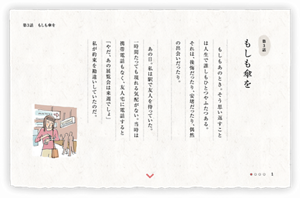 第3話 もしも傘を
第3話
もしも傘を
もしもあのとき、そう思い返すこと
は人生で誰しもひとつやふたつある。
それは、後悔だったり、安堵だったり、偶然
の出会いだったり。
あの日、私は駅で友人を待っていた。
一時間たっても現れる気配がない。当時は
携帯電話もなく、友人宅に電話すると
「やだ、あの展覧会は来週でしょ」
私が約束を勘違いしていたのだ。
1